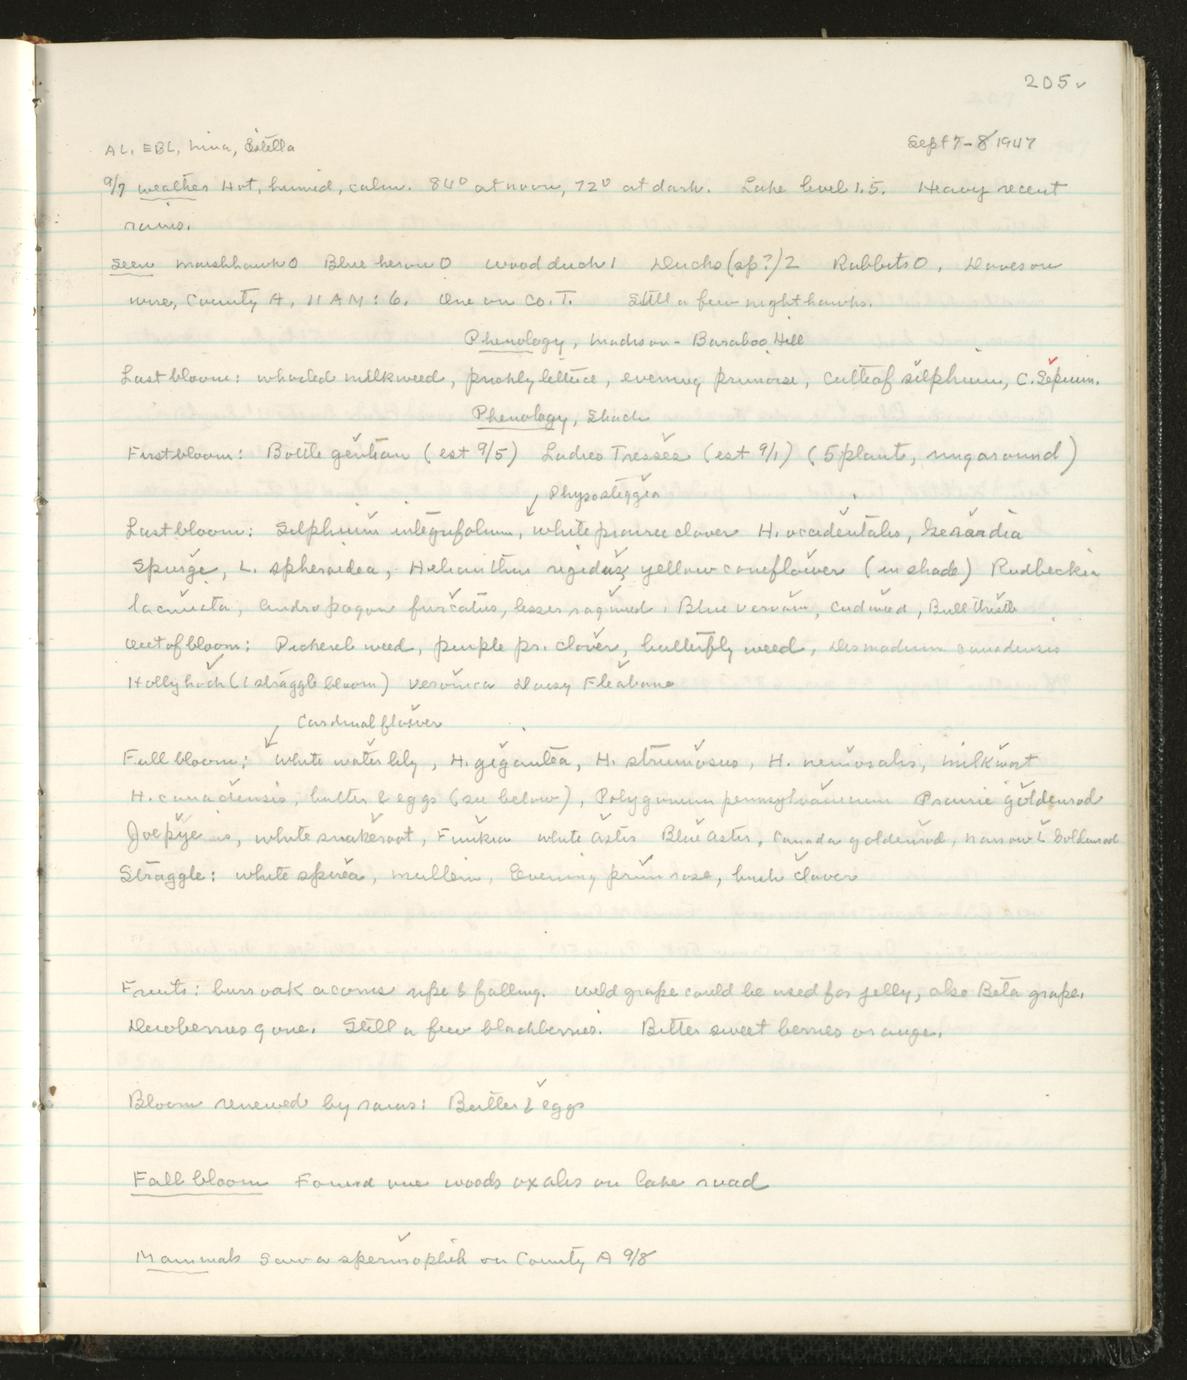 205
AL, EBL, Nina, Estella Sept 7-8 1947
9/7 weather Hot, humid, calm. 84° at noon, 72° at dark. Lake level 1.5. Heavy recent
rains.
Seen marshhawk 0 Blue heron 0 wood duck 1 Ducks (sp?) 2 Rabbits 0. Doves on
wire, County A, 11 AM: 6. One on Co. T. Still a few nighthawks.
Phenology, Madison - Baraboo Hill
Last bloom: whorled milkweed, prickly lettuce, evening primrose, cutleaf silphium, C. Sepium.
Phenology, Shack
First bloom: Bottle gentian (est 9/5) Ladies Tresses (est 9/1) (5 plants, rungaround)
Physostegia
Last bloom: Silphium integrifolium, white prairie clover H. occidentalis, Gerardia
Spurge, L. spheroidea, Helianthus rigidus, yellow coneflower (in shade) Rudbeckia
laciniata, Andropogon furcatus, lesser ragweed, Blue vervain, cudweed, Bull thistle
Out of bloom: Pickerel weed, purple pr. clover, butterfly weed, Desmodium canadensis
Hollyhock (1 straggle bloom) Veronica Daisy Fleabane
Cardinal flower
Full bloom: white water lily, H. gigantea, H. strumosus, H. nemoralis, milkwort
H. canadensis, butter & eggs (see below), Polygonum pennsylvanicum Prairie goldenrod
Joe pye, white snakeroot, Funkia white aster Blue Aster, Canada goldenrod, narrow L Goldenrod
Straggle: white spirea, mullein, Evening primrose, bush clover
Fruits: burr oak acorns ripe & falling. Wild grape could be used for jelly, also Beta grape.
Dewberries gone. Still a few blackberries. Bitter sweet berries orange.
Bloom renewed by rains: Butter & eggs
Fall bloom Found one woods oxalis on lake road
Mammals Saw a spermophile on County A 9/8